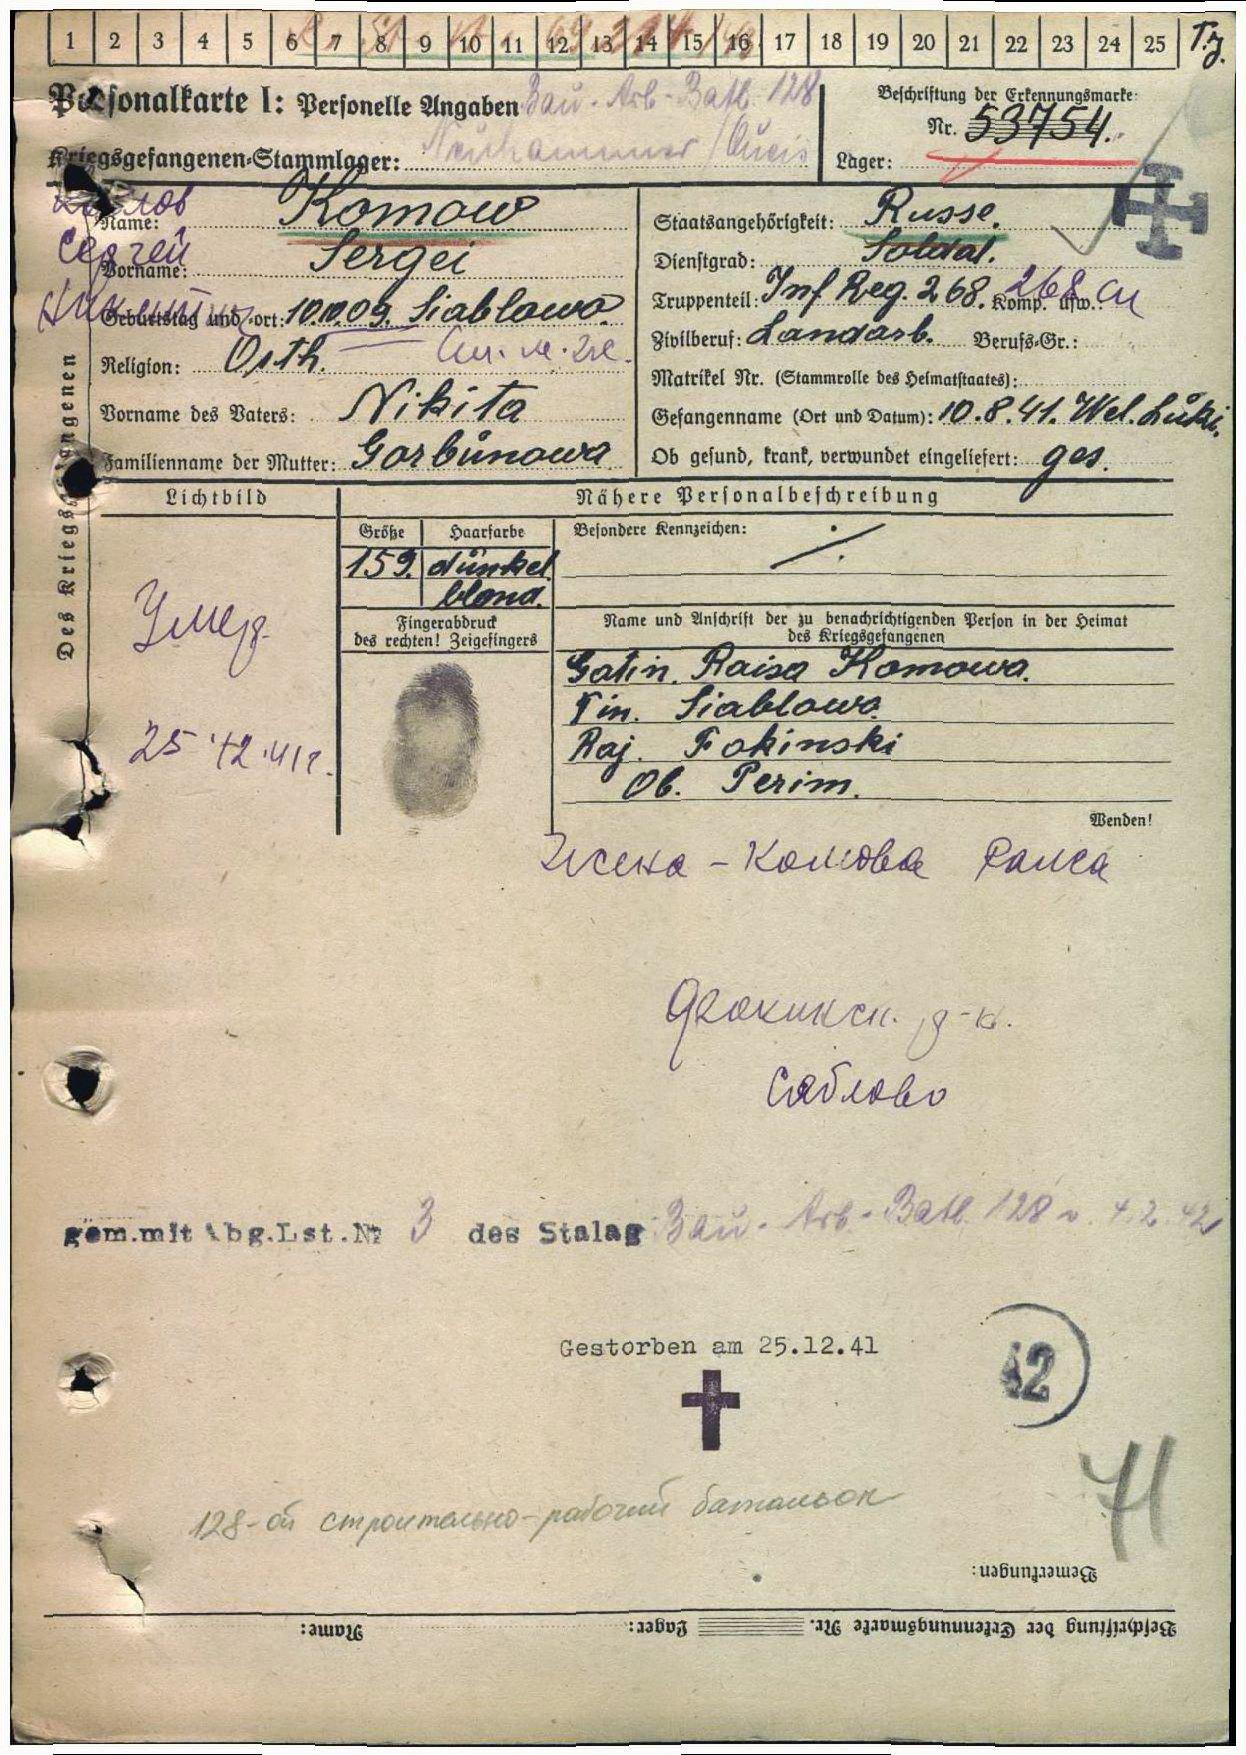 1 2 3 4 5 6 7 8 9 10 11 12 13 14 15 16 17 18 19 20 21 22 23 24 25
Personalkarte I: Personelle Angaben Bau-Arb-Batl. 128
Kriegsgefangenen-Stammlager: Neuhammer/Queis
Beschriftung der Erkennungsmarke:
Nr. 53754.
Lager:
Name: Komow
Сергей
Vorname: Sergei
Geburtstag und -ort: 10.10.09. Siablowo.
Religion: Orth.
Vorname des Vaters: Nikita
Familienname der Mutter: Gorbunowa
Staatsangehörigkeit: Russe.
Dienstgrad: Soldat.
Truppenteil: Inf Reg. 268. Komp. usw.: 268 сп
Zivilberuf: Landarb. Berufs-Gr.:
Matrikel Nr. (Stammrolle des Heimatstaates):
Gefangenname (Ort und Datum): 10.8.41. Wel. Luki.
Ob gesund, krank, verwundet eingeliefert: ges.
Des Kriegsgefangenen
Lichtbild
Nähere Personalbeschreibung
Größe Haarfarbe
159. dunkel
blond.
Besondere Kennzeichen: ./.
Fingerabdruck
des rechten! Zeigefingers
Name und Anschrift der zu benachrichtigenden Person in der Heimat
des Kriegsgefangenen
Gatin. Raisa Komowa.
Siablowo.
Raj. Fokinski
Ob. Perim.
Wenden!
Умер.
25.12.41г.
Жена - Комова Раиса
Фокинск. р-н.
Сяблово
gem.mit Abg.Lst.№ 3 des Stalag Bau-Arb-Batl. 128 v. 4.2.42
Gestorben am 25.12.41
42
71
128-ой строительно-рабочий батальон
Bemerkungen:
Beschriftung der Erkennungsmarke Nr. Lager: Name: